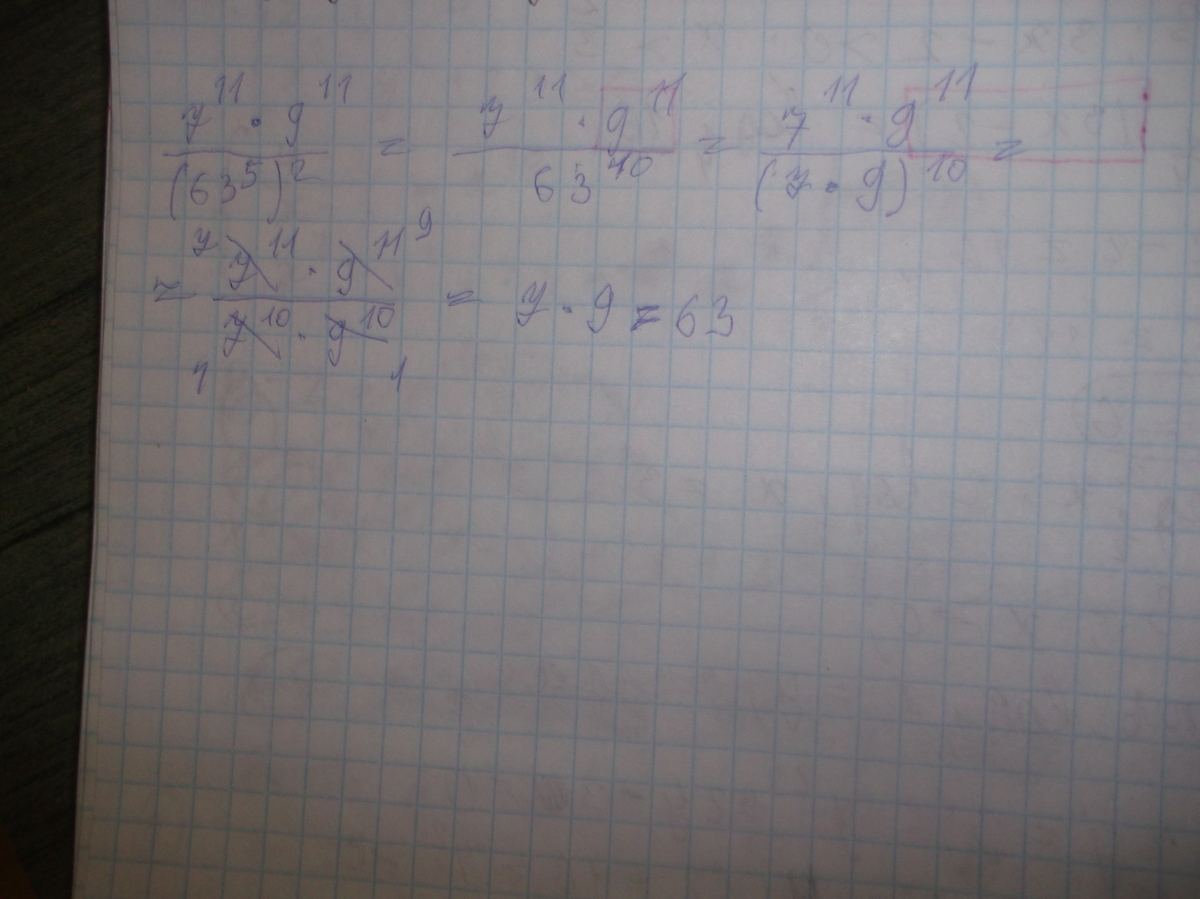 7^11 · 9^11 / (63^5)^2 = 7^11 · 9^11 / 63^10 = 7^11 · 9^11 / (7 · 9)^10 =
= 7 7^11 · 9^11 9 / 7^10 · 9^10 1 1 = 7 · 9 = 63